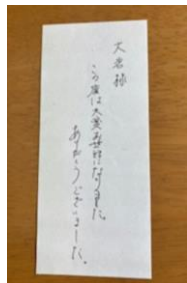 大君様
この度は大変お世話になりました。
ありがとうございました。